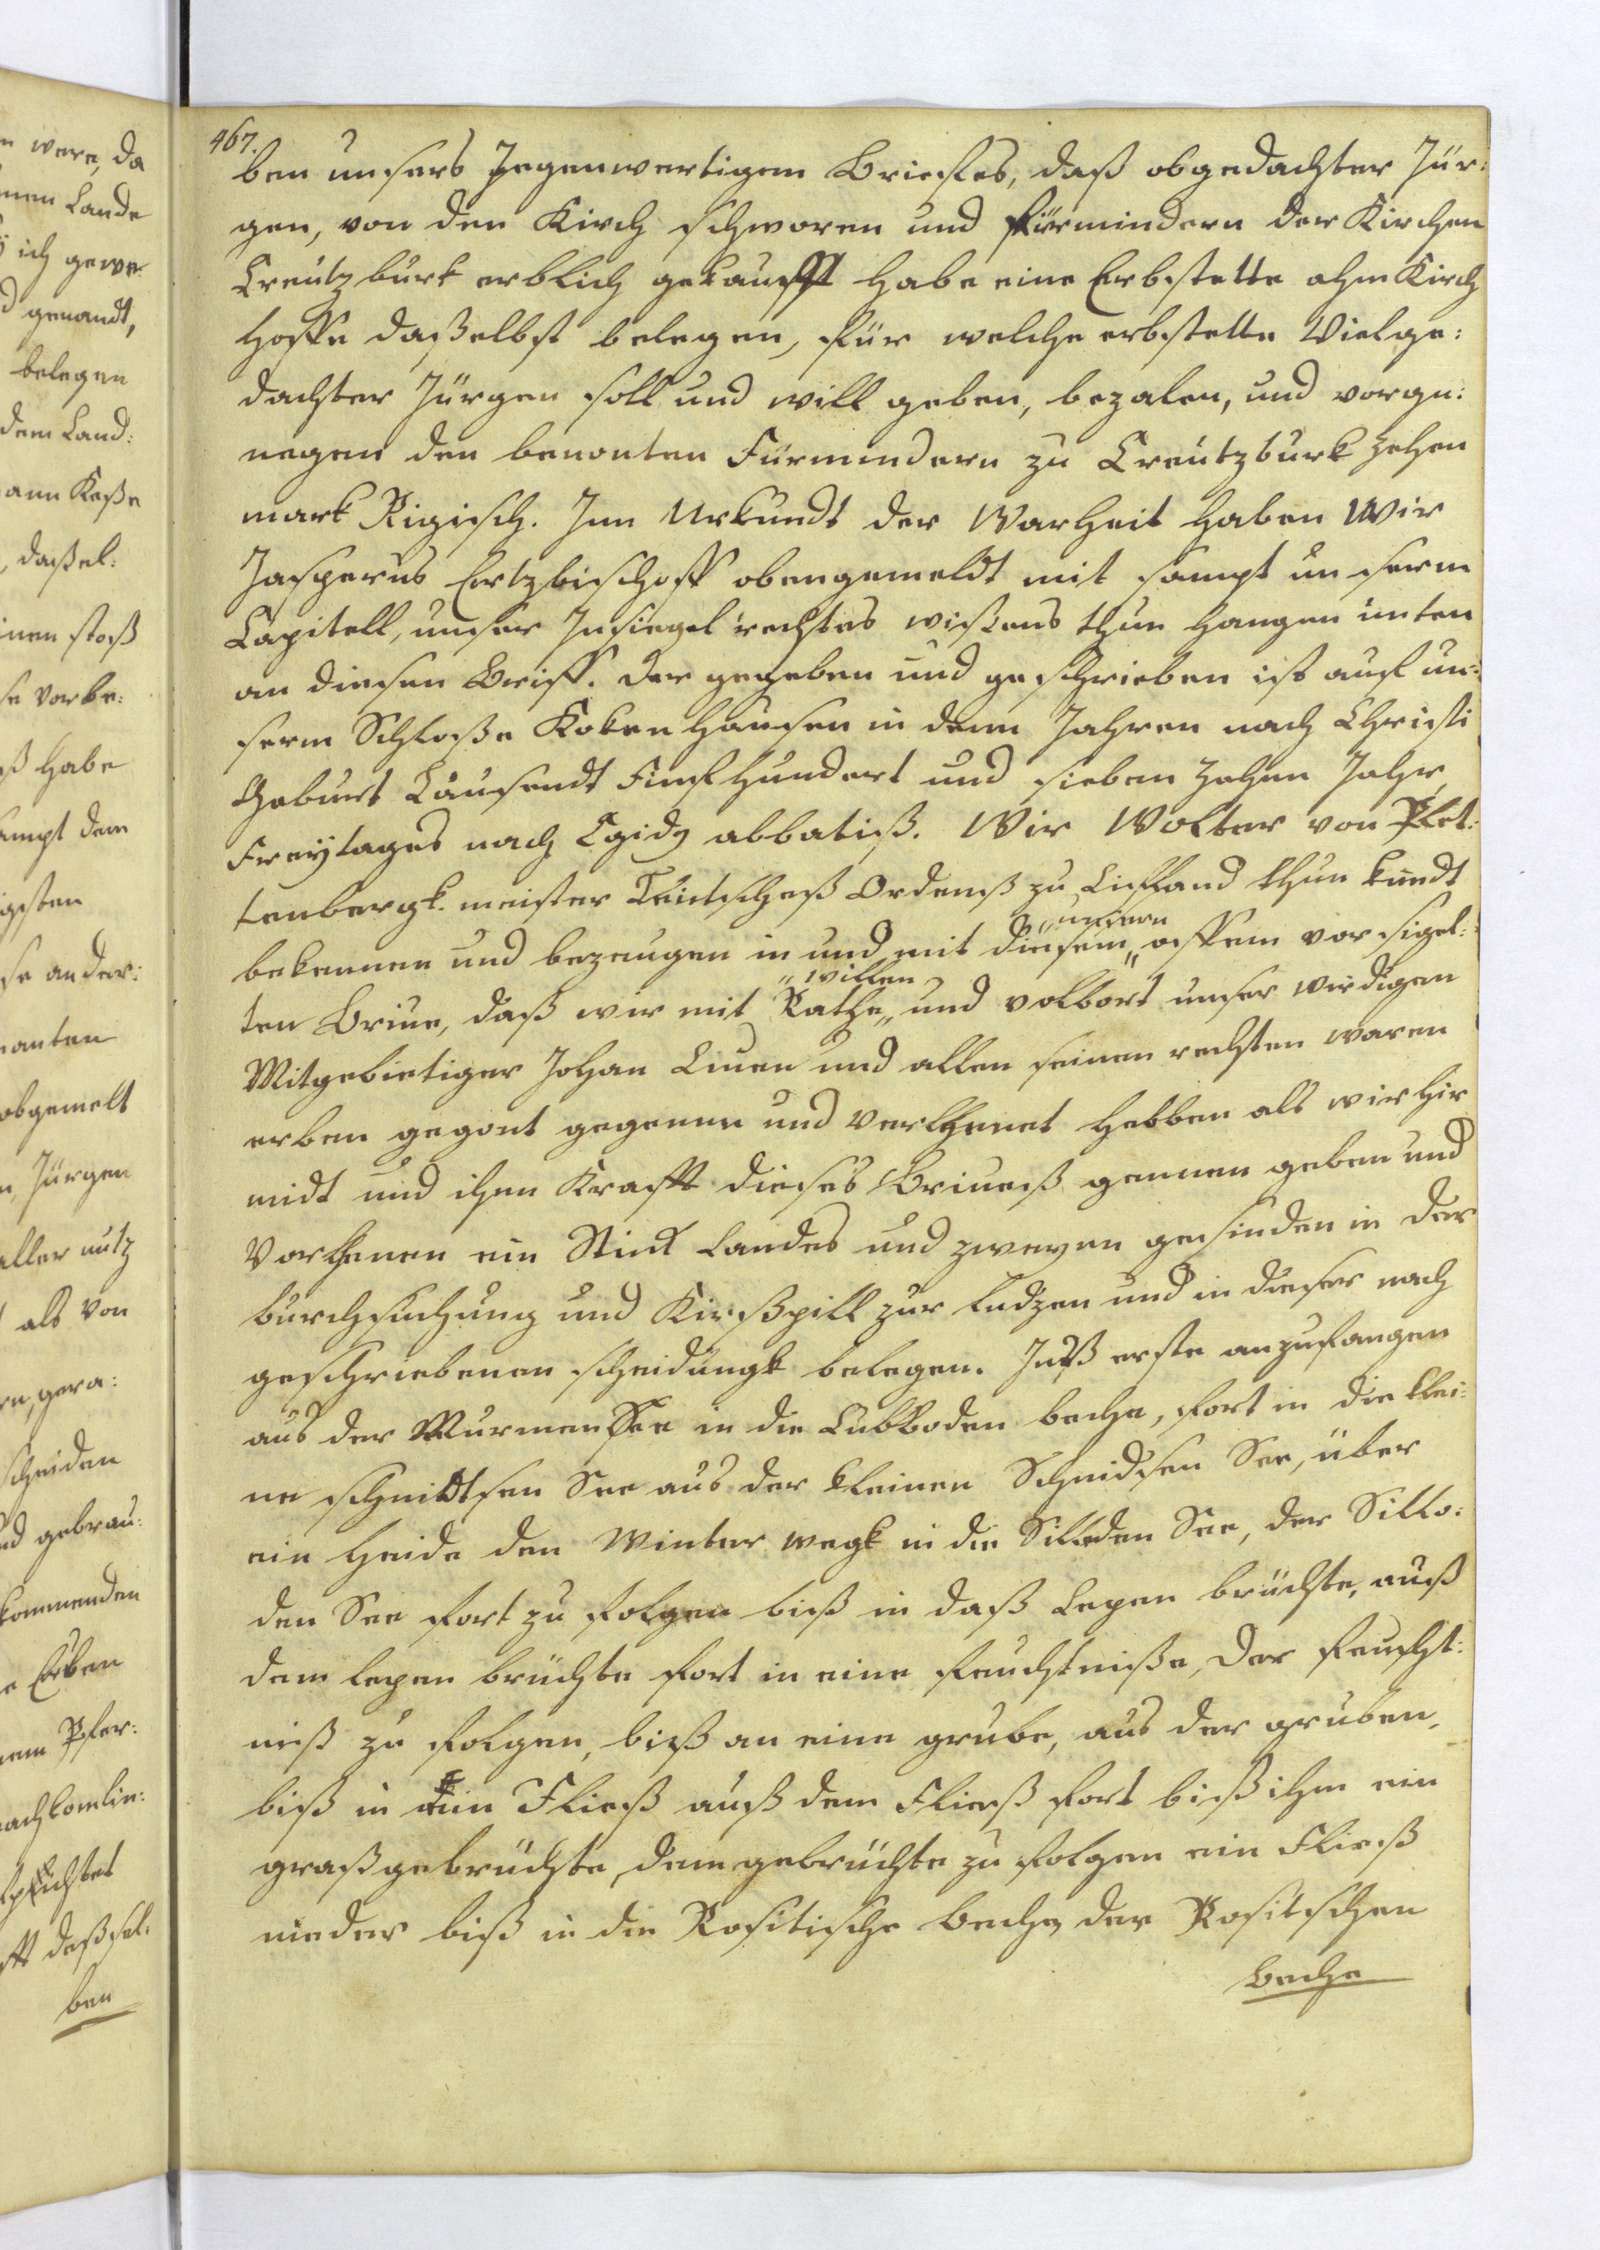 467.
ben unsers Jegenwertigem Brieffes, daß obgedachter Jür:
gen, von den Kirch schworen und fürmindern der Kirchen
Creutzburk erblich gekaufft habe eine Erbstette ahm Kirch
hoffe daßelbst belegen, für welche erbstette Vielge:
dachter Jürgen soll und will geben, bezalen, und vorgn:
negen den benonten Fürmindern zu Creutzburk zehen
mark Rigisch. Inn Urkundt der Warheit haben Wir
Jasperus Ertzbischoff obengemeldt mit sampt un serm
Capitell, unser Insiegel rechtes wißens thun hangen unten
an diesen Briff. der gegeben und geschrieben ist auf un:
serm Schloße Kokenhausen in denn Jahren nach Christi
Geburt Tausendt Funfhundert und sieben zehen Jahr,
Freytages nach Egidy abbatiß. Wir Wolter von Plet:
tenbergk. meister Teutscheß Ordenß zu Liefland thun kundt
bekennen und bezeugen in und mit diesem „unsern„ offem vorsigel:
ten Briue, daß wir mit Rathe „willen„ und volbort unser wirdigen
Mitgebietiger Johan Liuen und allen seinen rechten waren
erben gegont gegeuen und verlhenet hebben als wir hir
midt und ihm Krafft dieses Briueß gennen geben und
Vorlhenen ein Stück Landes und zweyen gesinden in der
burchsuchung und Kirßpill zur Ludzen und in dieser nach
geschriebenen scheidungk belegen. Inß erste anzufangen
aus der Murmensee in die Lubboden beche, fort in die klei:
ne schnidtsen See aus der kleinen Schnidsen See, über
ein Heide den Winter wegk in die Silloden See, der Sillo:
den See fort zu folgen biß in daß Lepen brüchte, auß
dem lepen brüchte fort in eine feuchtniße, der feucht:
niß zu folgen, biß an eine grube, aus der gruben,
biß in ein Fließ auß dem Fließ fort biß ihm ein
graßgebrüchte, dem gebrüchte zu folgen ein Fließ
nieder biß in die Rositische beche, der Rositschen
beche